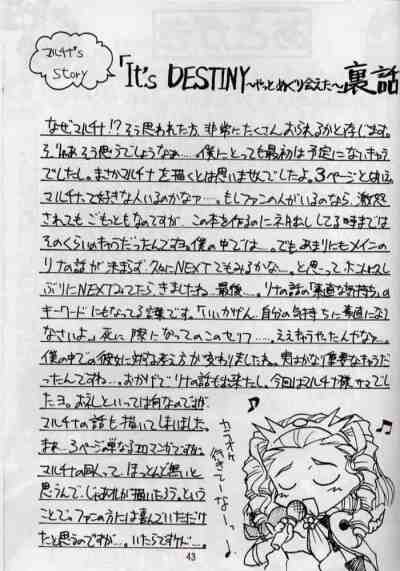 マルチナ's
Story
「It's DESTINY 〜やっとめぐり会えた〜」裏話
なぜマルチナ!?そう思われた方、非常にたくさんおられるかと存じます。
そりゃあそう思うでしょうなぁ……僕にとっても最初は予定にないキャラ
でしたし。まさかマルチナを描くとは思いませんでしたよ。3ページとはいえ。
マルチナって好きな人いるのかなァ…。もしファンの人がいるのなら、激怒
されてもごもっともなのですが、この本を作るのにネタ出ししてる時までは
そのくらいのキャラだったんですね。僕の中では…。でもあまりにもメインの
リナの話が決まらず、クルにNEXTでもみるかな…。と思ってホント久し
ぶりにNEXTみてたらきましたね…最後…。リナの話の「素直な気持ち」の
キーワードにもなってる言葉です。「いいかげん、自分の気持ちに素直になり
なさいよ。」死に際になってこのセリフ…。ええキャラやったんだなァ…。
僕の中での彼女に対する考え方が変わりましたね。実はかなり重要なキャラだ
ったんですね…。おかげでリナの話も出来たし、今回はマルチナ様サマでし
たョ。お礼といっては何なのですが
マルチナの話も描いてしまいました。
まぁ…3ページの単なるエロマンガですが…。
マルチナの同人って…ほとんど無いと
思うんで、じゃあおれが描いたろう。という
ことで。ファンの方には喜んでいただけ
たと思うのですが…。いたらですけど…。
カラオケ
行きてーなー…っ
43